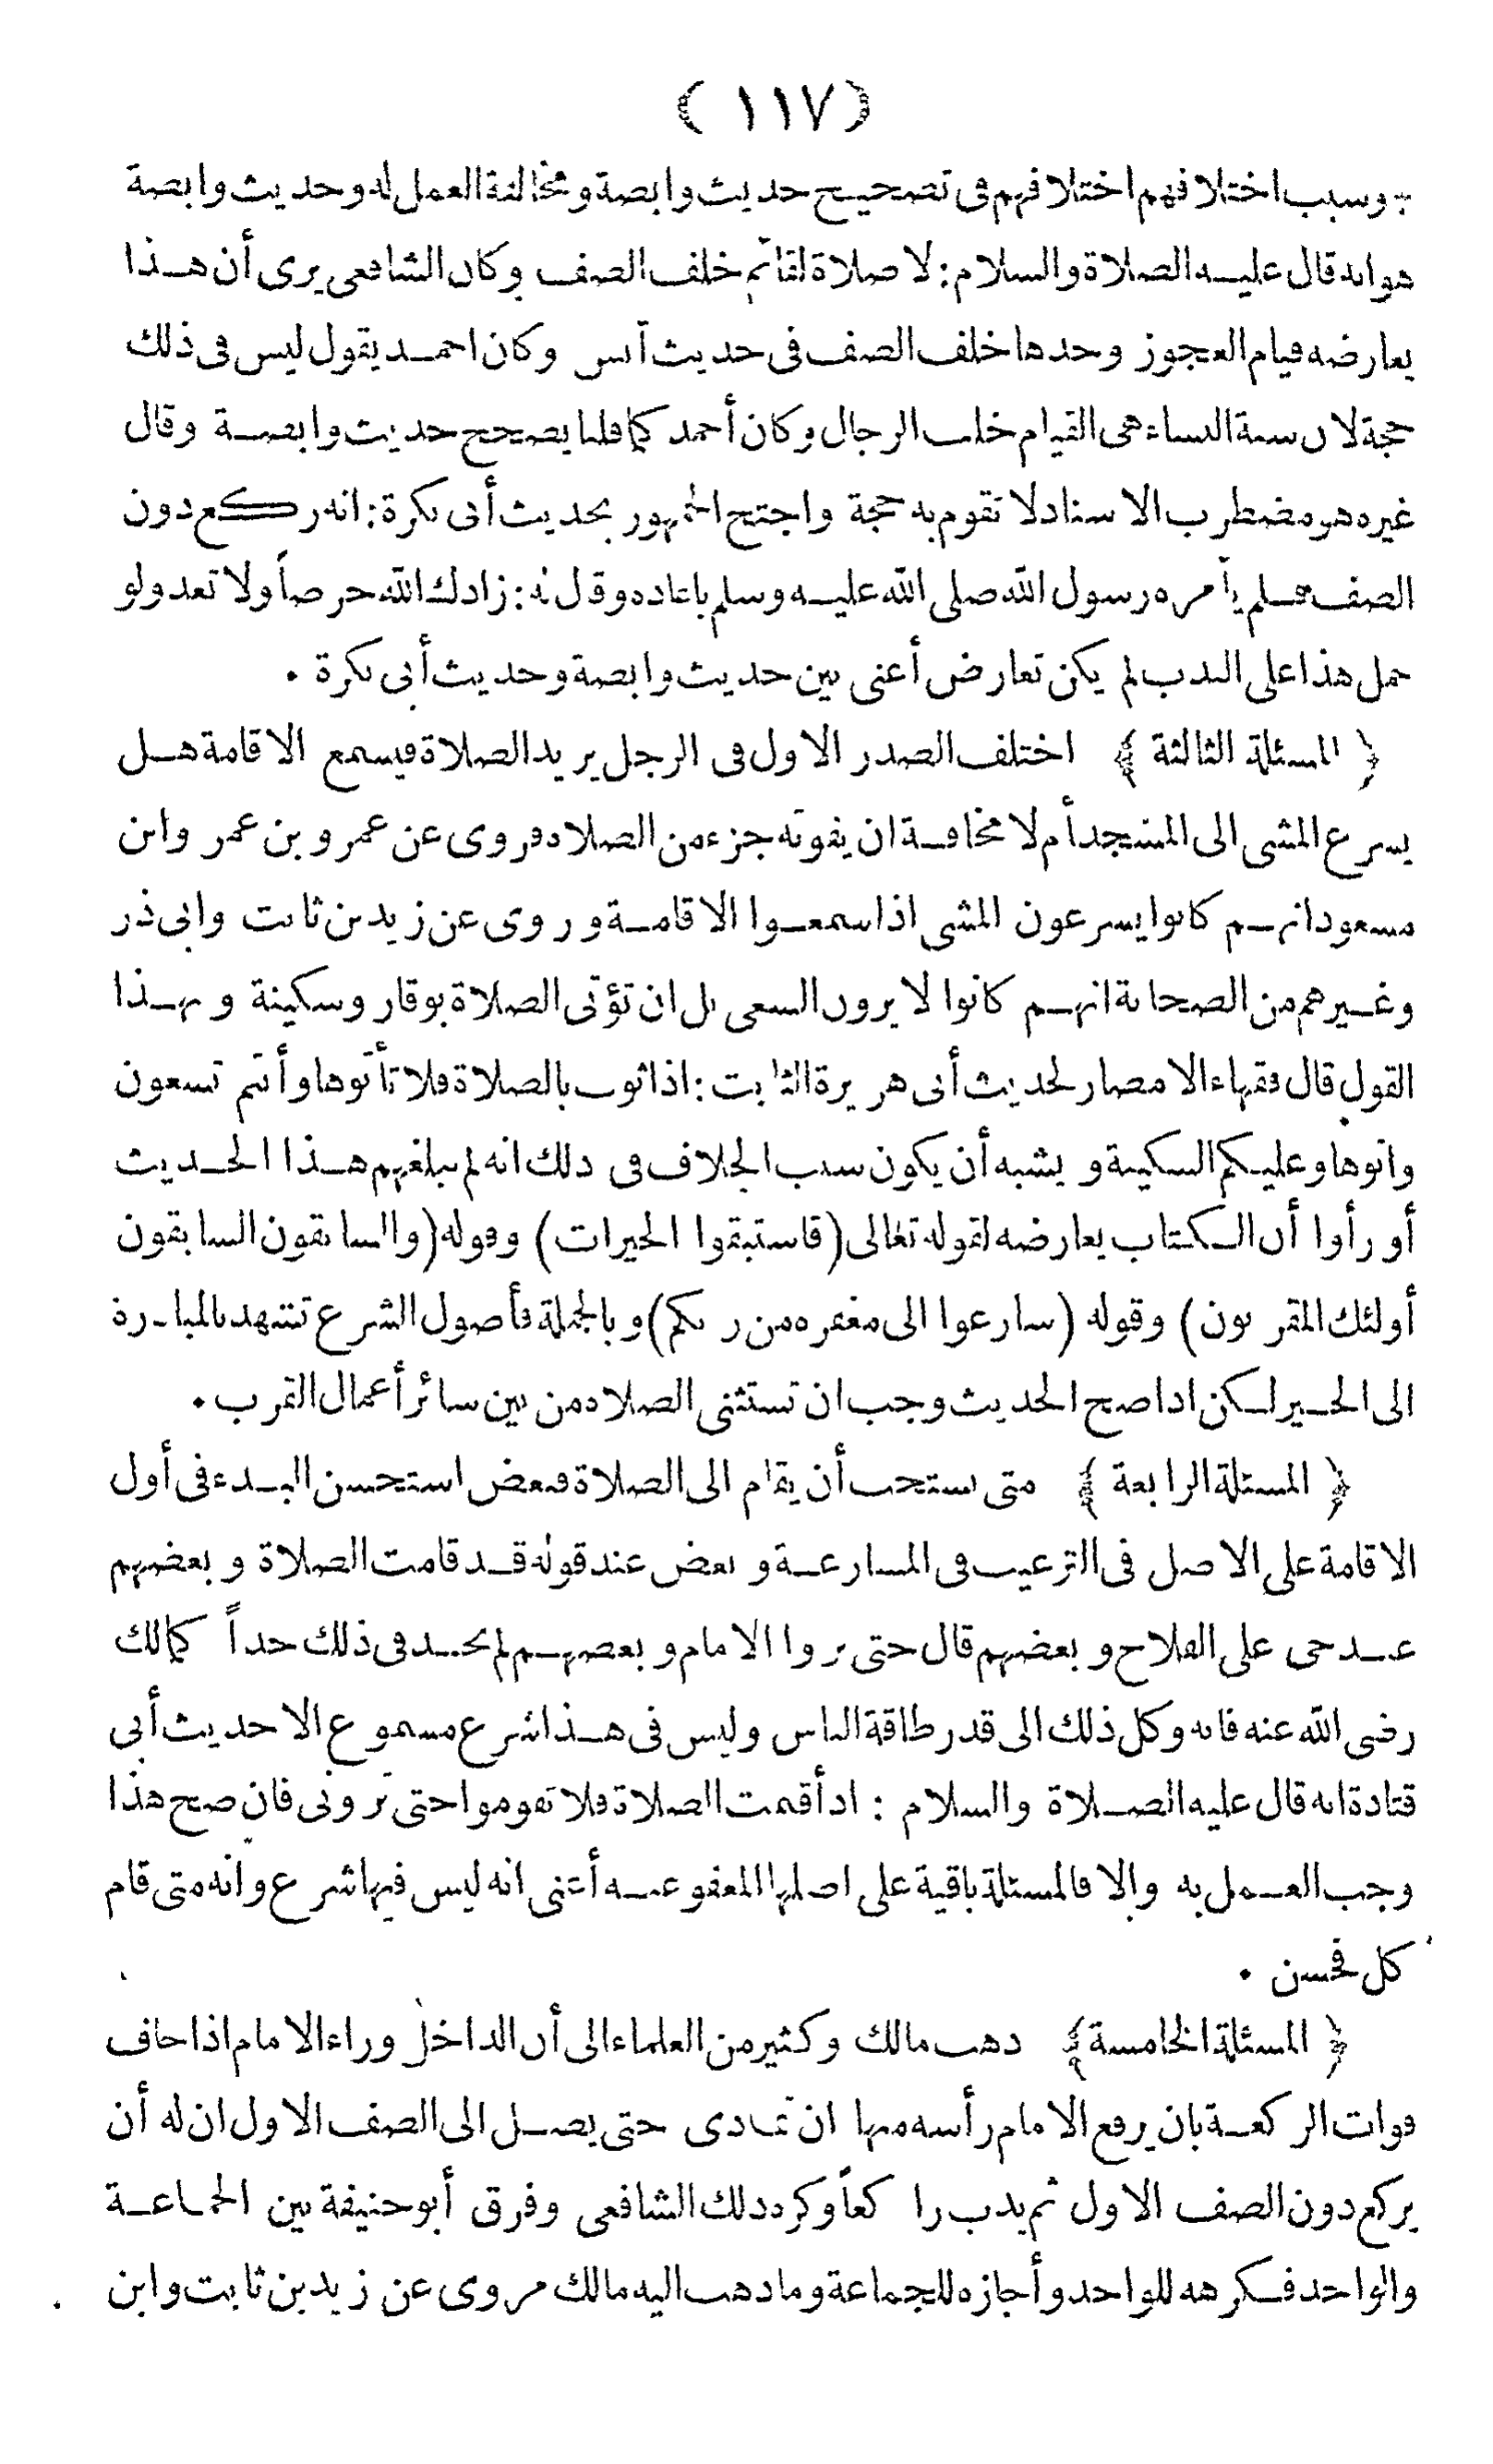 (١١٧)
وسبب اختلافهم اختلافهم في تصحيح حديث وابصة ومخالفة العمل له وحديث وابصة
هو انه قال عليه الصلاة والسلام: لا صلاة لقائم خلف الصف وكان الشافعي يرى أن هذا
يعارضه قيام العجوز وحدها خلف الصف في حديث أنس وكان احمد يقول ليس في ذلك
حجة لان سنة النساء هي القيام خلف الرجال وكان أحمد كما قلنا يصحح حديث وابصة وقال
غيره هو مضطرب الاسناد لا تقوم به حجة واحتج الجمهور بحديث أبي بكرة: انه ركع دون
الصف فلم يأمره رسول الله صلى الله عليه وسلم باعاده وقال له: زادك الله حرصاً ولا تعد ولو
حمل هذا على الندب لم يكن تعارض أعني بين حديث وابصة وحديث أبي بكرة .
﴿ المسئلة الثالثة ﴾ اختلف الصدر الاول في الرجل يريد الصلاة فيسمع الاقامة هل
يسرع المشي الى المسجد أم لا مخافة ان يفوته جزء من الصلاة فروى عن عمرو بن عمر وابن
مسعود انهم كانوا يسرعون المشي اذا سمعوا الاقامة وروى عن زيد بن ثابت وابي ذر
وغيرهم من الصحابة انهم كانوا لا يرون السعي بل ان تؤتى الصلاة بوقار وسكينة وبهذا
القول قال فقهاء الامصار لحديث أبي هريرة الثابت: اذا ثوب بالصلاة فلا تأتوها وأنتم تسعون
واتوها وعليكم السكينة و يشبه أن يكون سبب الخلاف في ذلك انه لم يبلغهم هذا الحديث
أو رأوا أن الكتاب يعارضه لقوله تعالى (فاستبقوا الخيرات) وقوله (والسابقون السابقون
أولئك المقربون) وقوله (سارعوا الى مغفرة من ربكم) وبالجملة فأصول الشرع تشهد بالمبادرة
الى الخير لكن اذا صح الحديث وجب ان تستثنى الصلاة من بين سائر أعمال القرب .
﴿ المسئلة الرابعة ﴾ متى يستحب أن يقام الى الصلاة فبعض استحسن البدء في أول
الاقامة على الاصل في الترغيب في المسارعة و بعض عند قوله قد قامت الصلاة و بعضهم
عند حي على الفلاح و بعضهم قال حتى يروا الامام و بعضهم لم يحد في ذلك حداً كمالك
رضي الله عنه فانه وكل ذلك الى قدر طاقة الناس وليس في هذا شرع مسموع الا حديث أبي
قتادة انه قال عليه الصلاة والسلام : اذ أقيمت الصلاة فلا تقوموا حتى تروني فان صح هذا
وجب العمل به والا فالمسئلة باقية على اصلها المعفو عنه أعني انه ليس فيها شرع وانه متى قام
كل فحسن .
﴿ المسئلة الخامسة ﴾ ذهب مالك وكثير من العلماء الى أن الداخل وراء الامام اذا خاف
فوات الركعة بان يرفع الامام رأسه منها ان تمادى حتى يصل الى الصف الاول ان له أن
يركع دون الصف الاول ثم يدب راكعاً وكره ذلك الشافعي وفرق أبو حنيفة بين الجماعة
والواحد فكرهه للواحد وأجازه للجماعة وما ذهب اليه مالك مروى عن زيد بن ثابت وابن